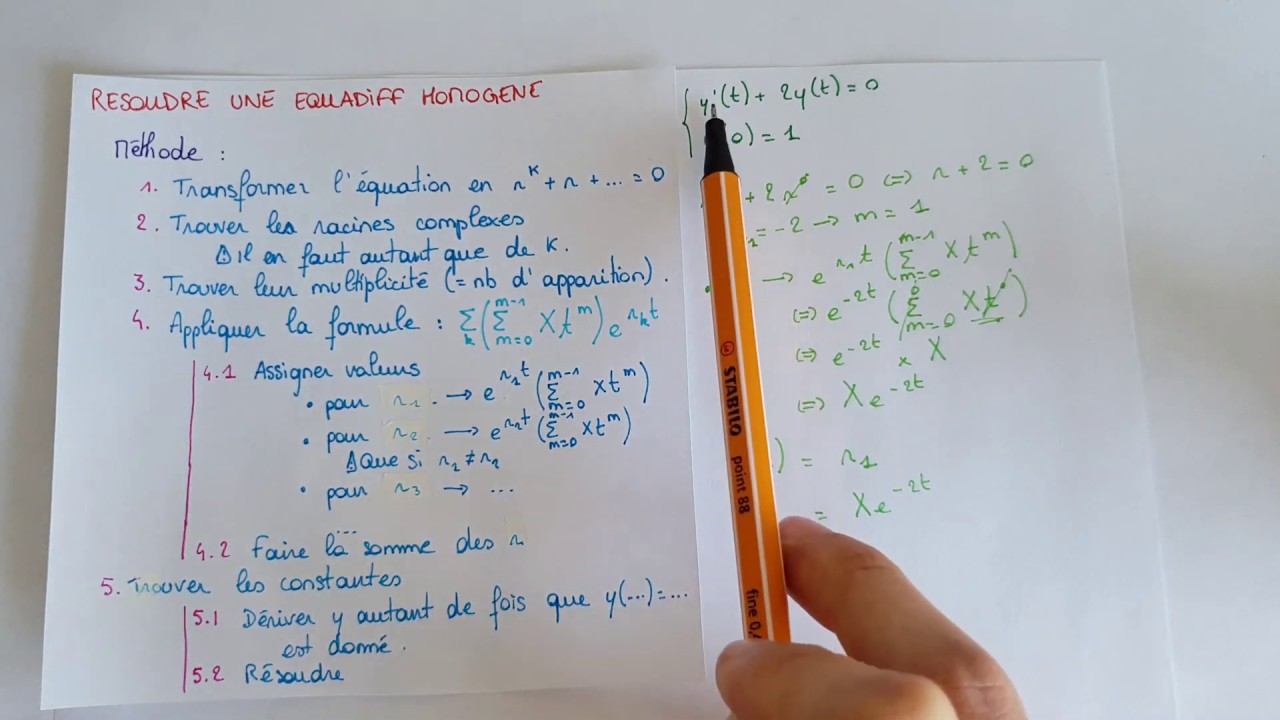 RESOUDRE UNE EQUADIFF HOMOGENE
Méthode :
1. Transformer l'équation en r^k + r + ... = 0
2. Trouver les racines complexes
⚠ il en faut autant que de k.
3. Trouver leur multiplicité (= nb d'apparition).
4. Appliquer la formule : Σ_k (Σ_{m=0}^{m-1} X t^m) e^{r_k t}
4.1 Assigner valeurs
• pour r_1 → e^{r_1 t} (Σ_{m=0}^{m-1} X t^m)
• pour r_2 → e^{r_2 t} (Σ_{m=0}^{m-1} X t^m)
⚠ Que si r_1 ≠ r_2
• pour r_3 → ...
...
4.2 Faire la somme des r
5. Trouver les constantes
5.1 Dériver y autant de fois que y(...) = ...
est donné.
5.2 Résoudre
{ y'(t) + 2y(t) = 0
0) = 1
+ 2 r^0 = 0 ⟺ r + 2 = 0
= -2 → m = 1
→ e^{r_1 t} (Σ_{m=0}^{m-1} X t^m)
⟺ e^{-2t} (Σ_{m=0}^{0} X t^0)
⟺ e^{-2t} × X
⟺ X e^{-2t}
) = r_1
= X e^{-2t}
STABILO point 88 fine 0,4